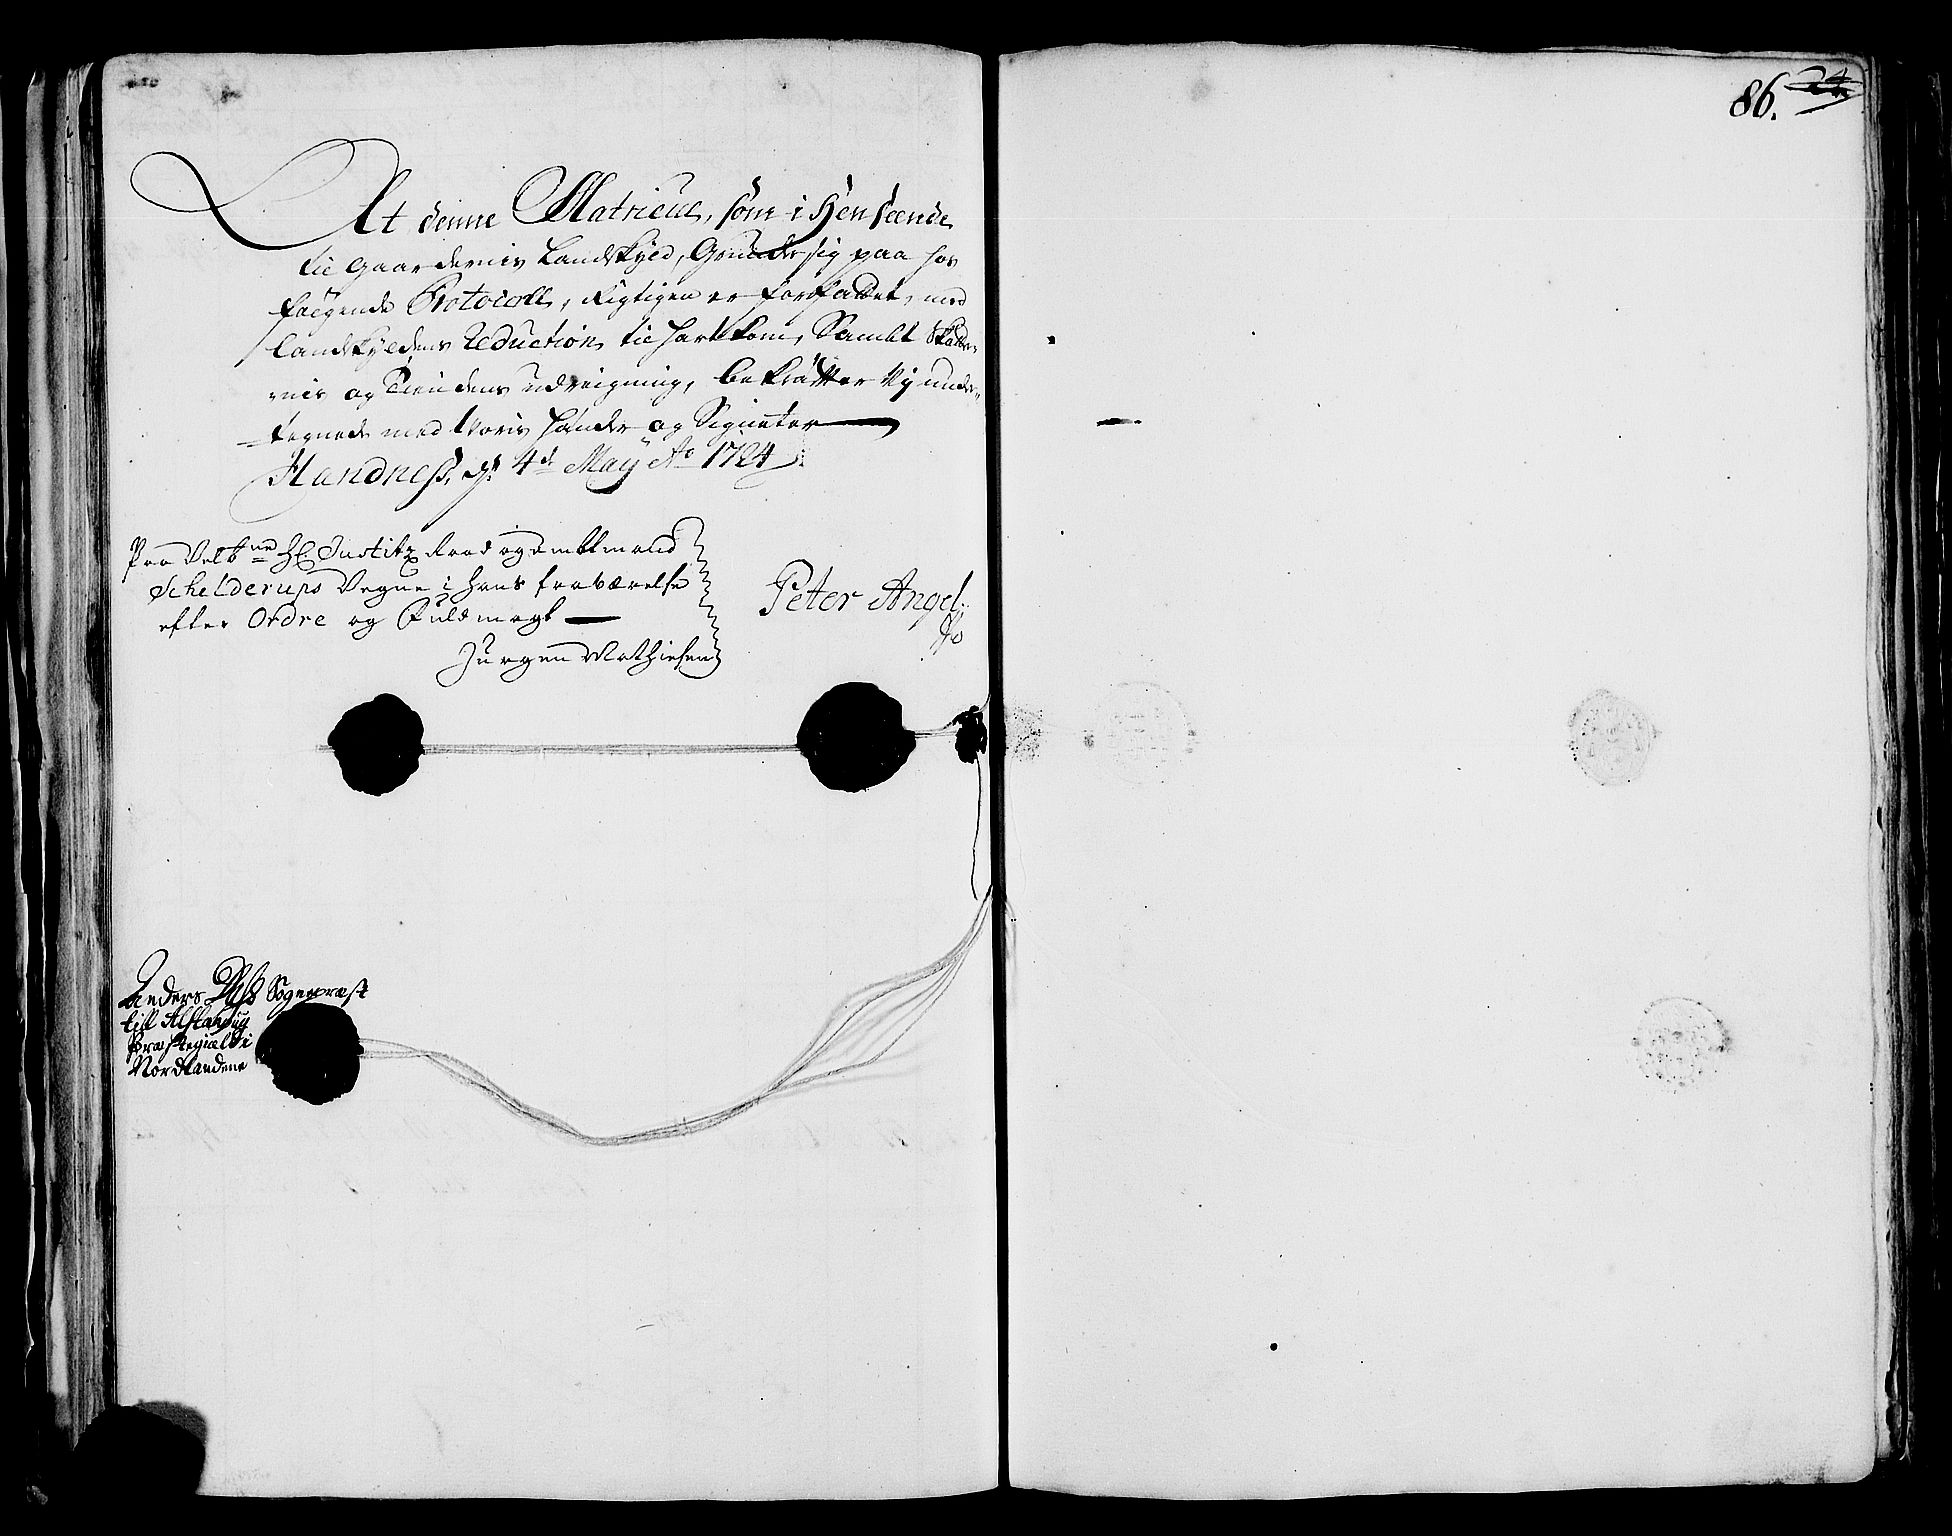 86. 24
At denne Matricul, som i Henseende
til Gaardernis Landskyld, Grunder sig paa hos
følgende Protocoll, Rigtigen er forfattet, med
Landskyldens Reduction til Hartkorn, Sambt Skatter-
nis og Tiendens udreigning, bekræfter Vj under-
tegnede med Voris Hænder og Signeter
Handness, d. 4de May Ao 1724
Paa Velbne Hr Justitz Raad og Ambtmand
Schelderups Vegne i hans fraværelse
efter Ordre og Fuldmagt
Jurgen Mathiesen
Peter Angel
Anders Dass Sognepræst
till Alstahoug
Præstegiæld i
Nordlandene